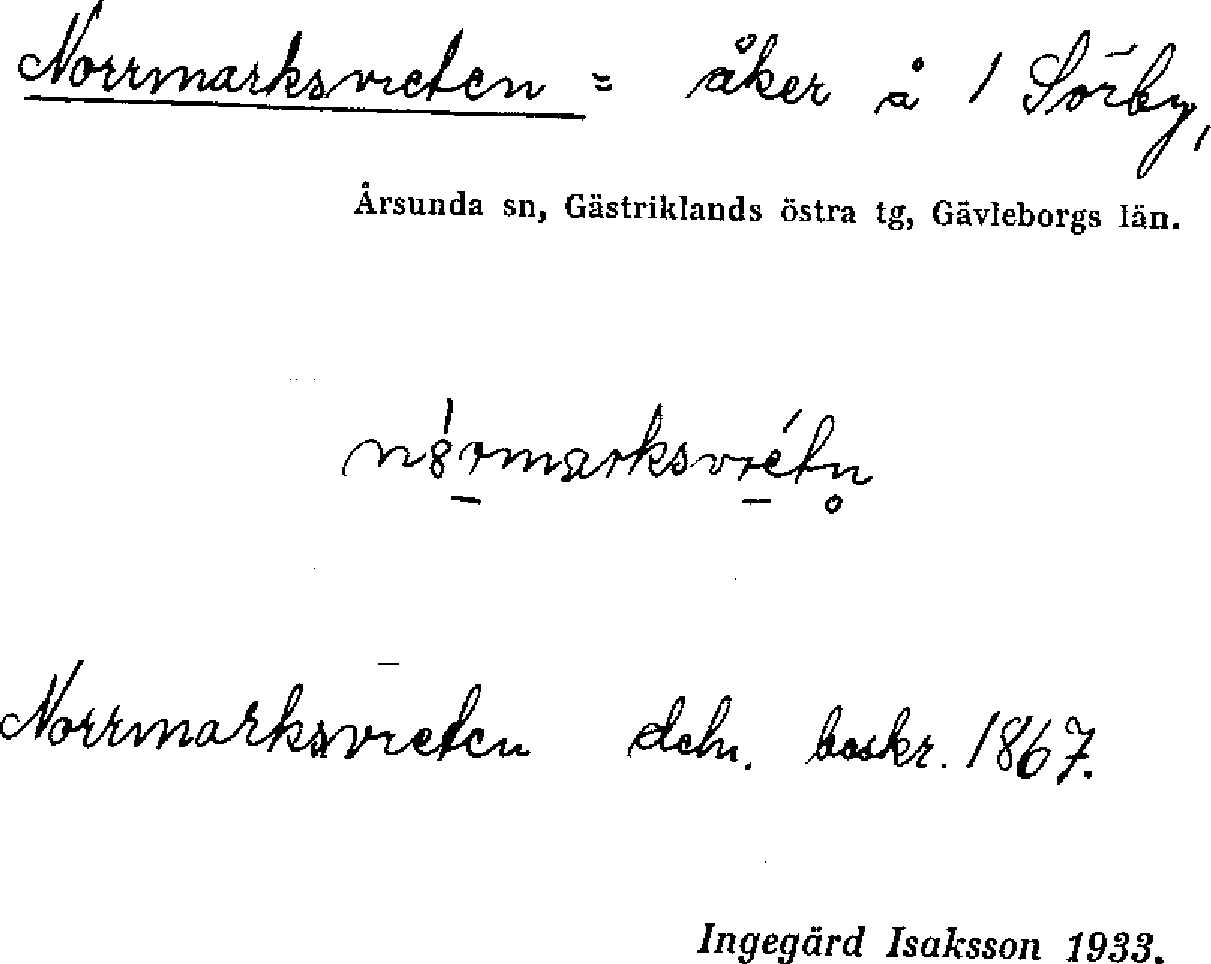 Norrmarksvreten = åker å 1 Sörby,
Årsunda sn, Gästriklands östra tg, Gävleborgs län.
Norrmarksvreten deln. beskr. 1867.
Ingegärd Isaksson 1933.